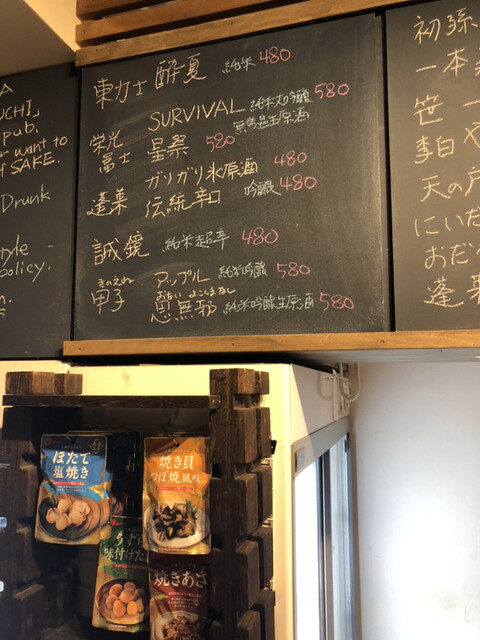 UCHI,
pub.
want to
SAKE.
Drunk
style -
policy.
東力士 酔夏 純米 480
栄光冨士 SURVIVAL 純米大吟醸 580
無濾過生原酒
星祭 580
蓬莱 ガリガリ氷原酒 480
伝統辛口 吟醸 480
誠鏡 純米超辛 480
きのえね
甲子 アップル 純米吟醸 580
おもい よこしまなし
思無邪 純米吟醸生原酒 580
初孫
一本
笹一
李白 や
天の戸
にいだ
おだ
蓬莱
ほたて
塩焼き
焼き貝
つぼ焼風味
うずら
味付けた
焼きあさ